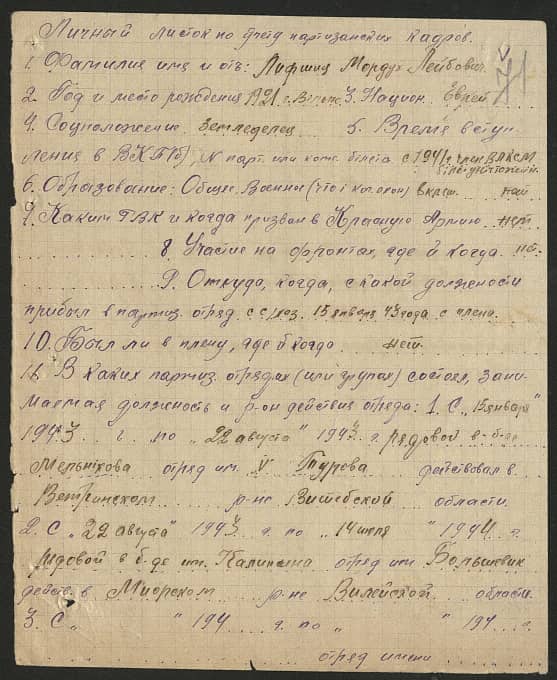 Личный листок по учету партизанских кадров.
1. Фамилия имя и отч: Лифшиц Мордух Лейбович
2. Год и место рождения 1921 г. 3. Национ. Еврей
4. Соцположение земледелец 5. Время вступ-
ления в ВКП(б), N парт. или комс. билета с 1941 г. член ВЛКСМ
6. Образование: Общее. Военное (что и ког. окон) 6 клас. нет
7. Каким ГВК и когда призван в Красную Армию нет
8. Участие на фронтах, где и когда. нет.
9. Откуда, когда, с какой должности
прибыл в партиз. отряд. с с/хоз. 15 января 43 года с плена.
10. Был ли в плену, где и когда нет.
11. В каких партиз. отрядах (или групах) состоял, зани-
маемая должность и р-он действия отряда: 1. С „15 января"
1943 г. по „22 августа" 1943 г. рядовой в б-де
Мельникова отряд им. Турова действовал в
Ветринском р-не Витебской области.
2. С „22 августа" 1943 г. по „14 июля" 1944 г.
рядовой в б-де им. Калинина отряд им Большевик
действ. в Миорском р-не Вилейской области.
3. С „ " 194 г. по „ " 194 г.
отряд имени